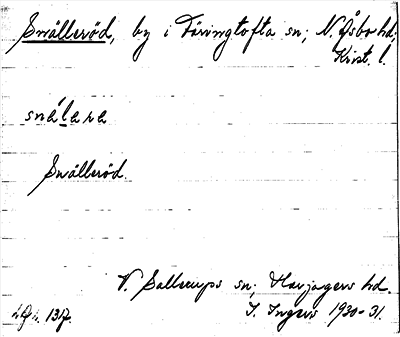 Snälleröd, by i Döringtofta sn; N. Åsbo hd;
Krist. l.
snálara
Snälleröd.
N. Sallerups sn; Harjagers hd.
I. Ingers 1930-31.
1317.